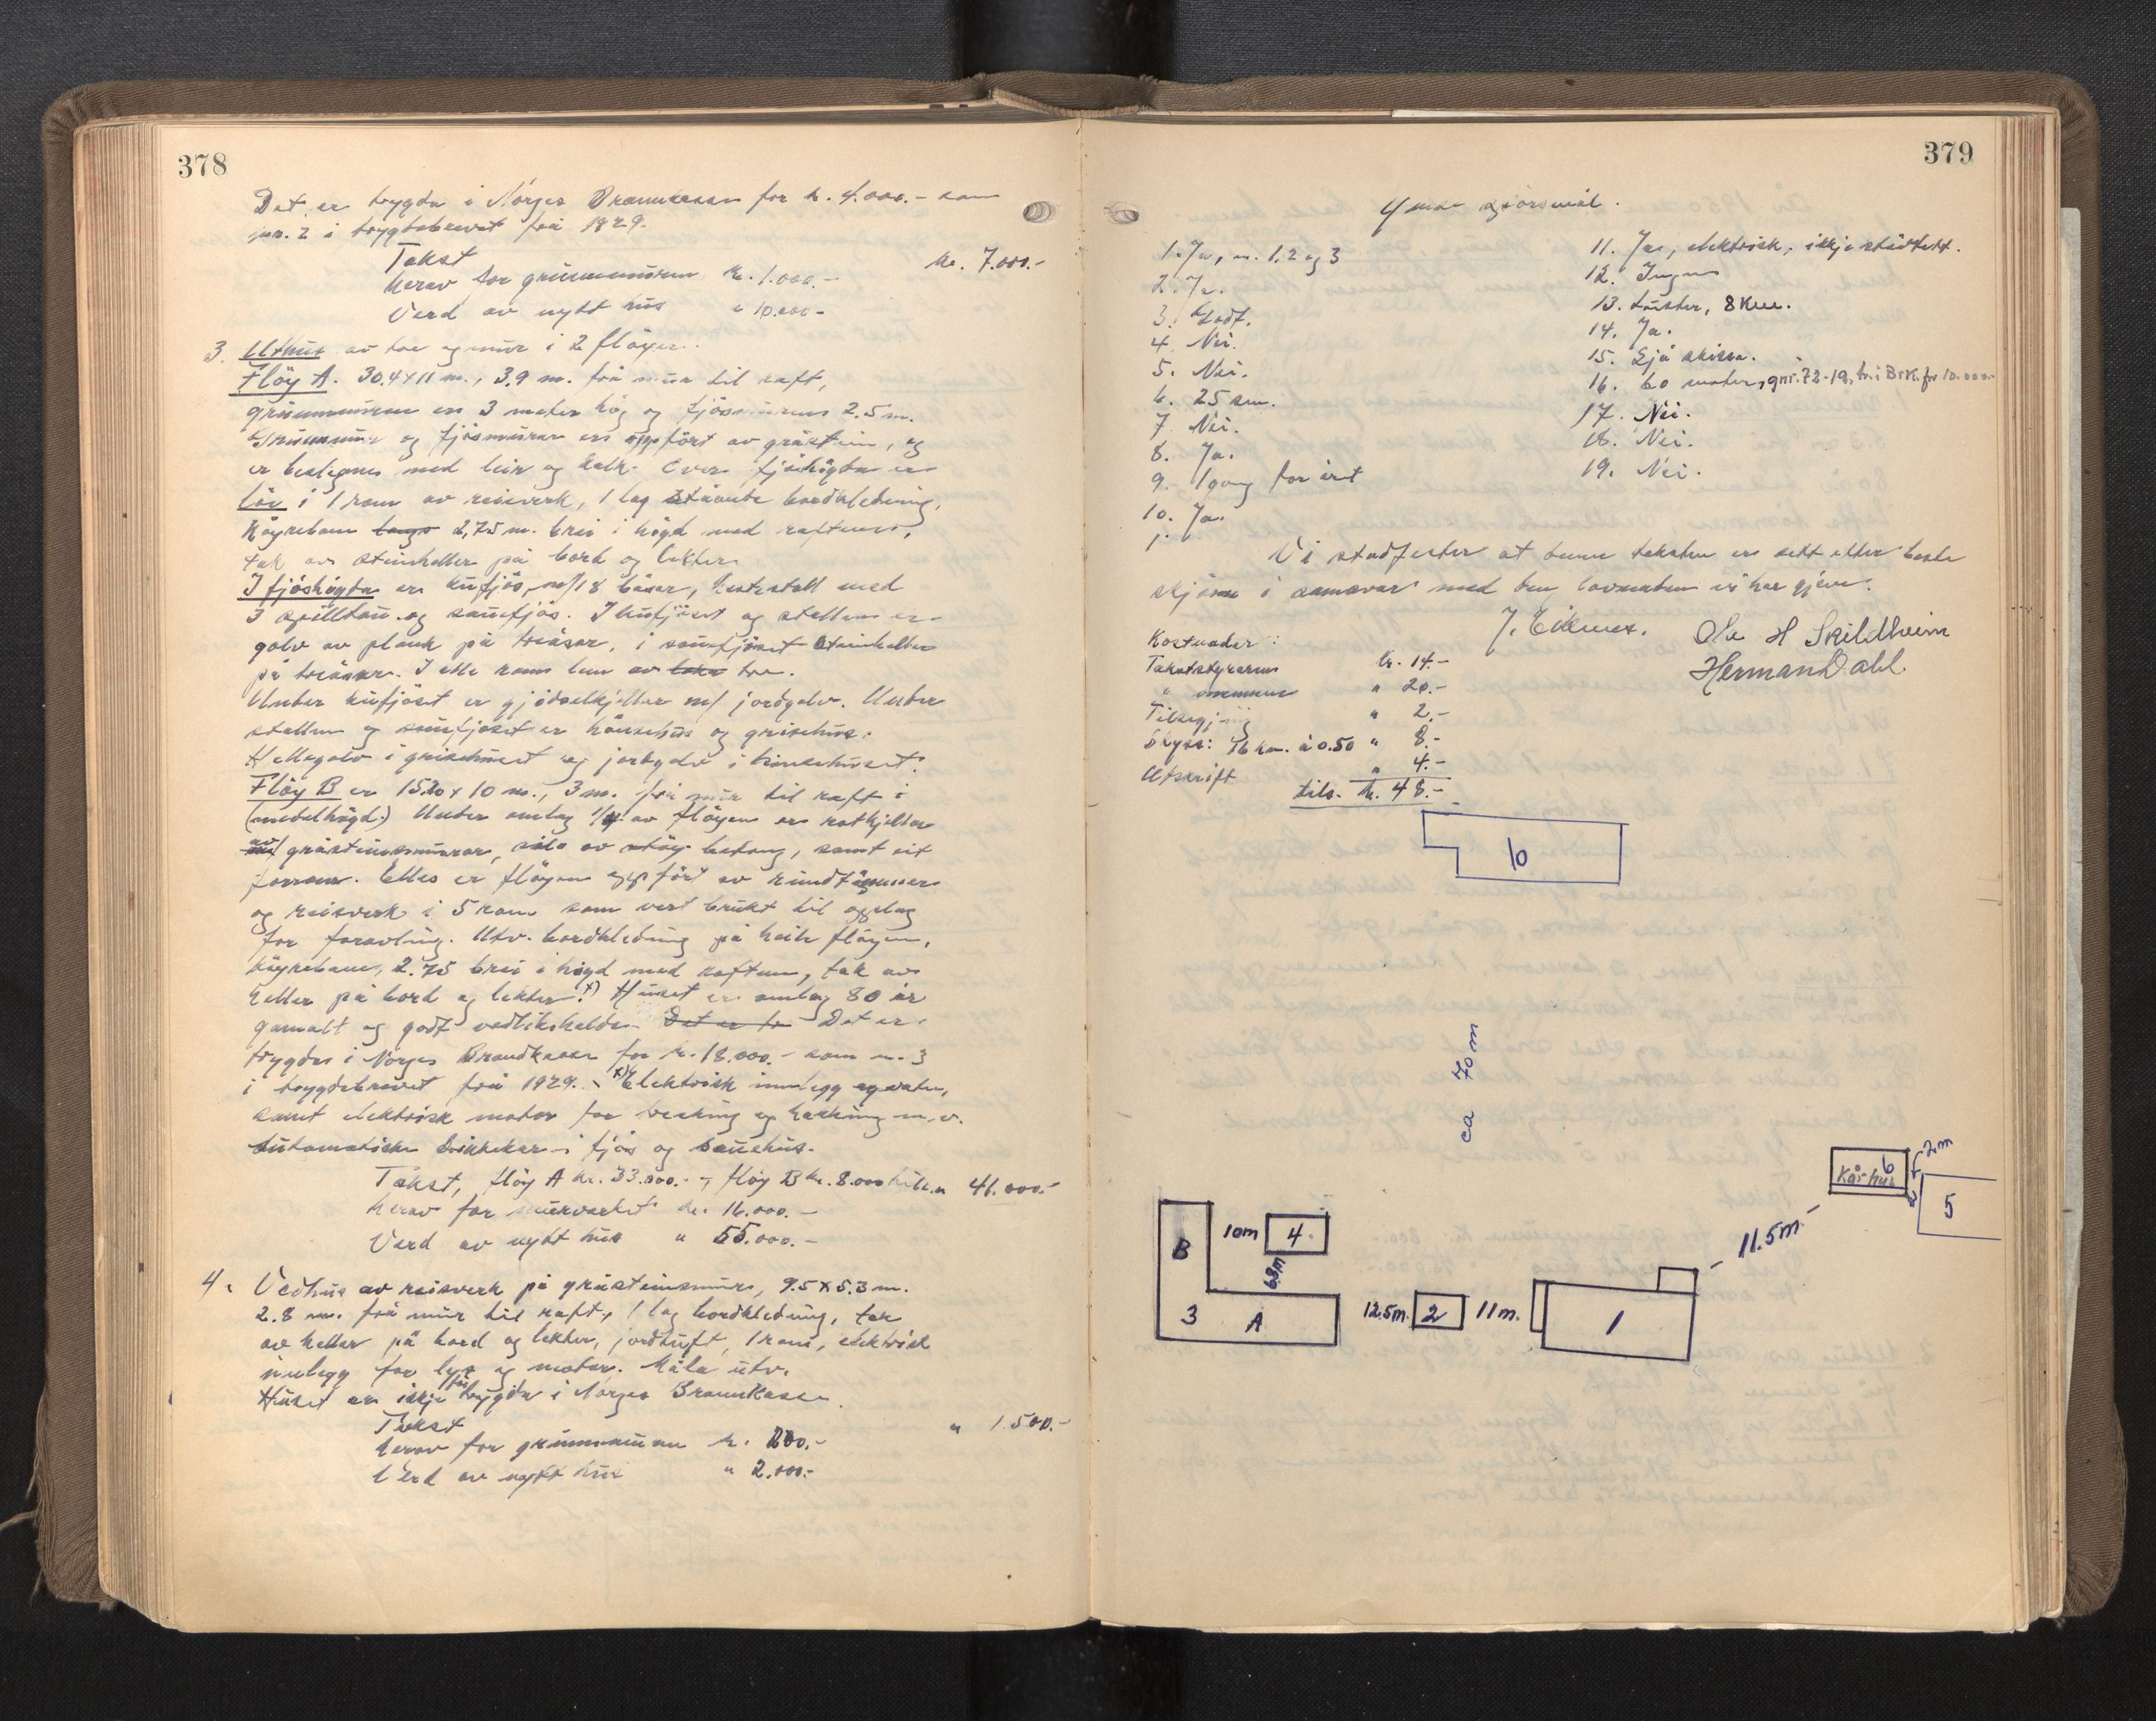 378
Det er trygda i Norges Brannkasse for kr. 4.000.- som
nr. 2 i trygdebrevet frå 1929.
Takst kr. 7.000.-
herav for grunnmuren kr. 1.000.-
Verd av nytt hus " 10.000-
3. Uthus av tre og mur i 2 fløyer.
Fløy A. 30.4x11 m., 3.9 m. frå mur til raft,
grunnmuren er 3 meter høg og fjøsmuren 2.5 m.
Grunnmur og fjøsmurar er oppført av gråstein, og
er beslegne med leir og kalk. Over fjøshøgda er
løe i 1 rom av reisverk, 1 lag ståande bordkledning,
køyrebane 2,75 m. brei i høgd med raftene,
tak av steinheller på bord og lekter.
I fjøshøgda er kufjøs, m/18 båsar, hestestall med
3 spilltau og saufjøs. I kufjøset og stallen er
golv av plank på treåsar, i saufjøset steinheller
på treåsar. I alle rom lem av tre.
Under kufjøset er gjødselkjeller m/ jordgolv. Under
stallen og saufjøset er hønsehus og grisehus.
Hellegolv i grisehuset og jordgolv i hønsehuset.
Fløy B er 15.20 x 10 m., 3 m. frå mur til raft i
(medelhøgd.) Under omlag 1/4 av fløyen er rotkjellar
av gråsteinsmurar, silo av støypt betong, samt eit
forrom. Elles er fløyen oppført av rundtømmer
og reisverk i 5 rom som vert brukt til opplag
for foravling. Utv. bordkledning på heile fløyen,
køyrebane, 2.75 brei i høgd med raftene, tak av
heller på bord og lekter. x) Huset er omlag 80 år
gamalt og godt vedlikehalde. Det er to Det er
trygda i Norges Brandkasse for kr. 18.000.- som nr. 3
i trygdebrevet frå 1929. x) Elektrisk innlegg og vatn,
samt elektrisk motor for tresking og hakking m.v.
Automatiske drikkekar i fjøs og sauehus.
Takst, fløy A kr. 33.000.-, fløy B kr. 8.000 tils. " 41.000.-
herav for murverket kr. 16.000.-
Verd av nytt hus " 55.000.-
4. Vedhus av reisverk på gråsteinsmur, 9.5 x 5.3 m.
2.8 m. frå mur til raft, 1 lag bordkledning, tak
av heller på bord og lekter, 1 rom, elektrisk
innlegg for lys og motor. Måla utv.
Huset er ikkje før trygda i Norges Brannkasse.
Takst " 1.500.-
herav for grunnmuren kr. 200.-
Verd av nytt hus " 2.000.-
379
Ymse spørsmål.
1. Ja, nr. 1, 2 og 3
2. Ja.
3. Godt.
4. Nei.
5. Nei.
6. 25 cm.
7. Nei.
8. Ja.
9. 1 gong for året
10. Ja.
11. Ja, elektrisk, ikkje
12. Ingen
13. Luster, 8 km.
14. Ja.
15. Sjå skissa.
16. 60 meter, gnr. 72-19, tr. i Br.k. for 10.000-
17. Nei.
18. Nei.
19. Nei.
Vi stadfester at denne taksten er sett etter beste
skjønn i samsvar med den lovnaden vi har gjeve.
J. Eikenes. Ole H Skildheim
Herman Dahl
Kostnader:
Takstskrivaren kr. 14.-
" mennene " 20.-
Tilseying " 2.-
Skyss: 16 km. à 0.50 " 8.-
Utskrift " 4.-
tils. kr. 48.-
6
ca 70 m
6
Kårhus
2 m
5
11.5 m.
B
10 m
4.
6.8 m
3 A
12.5 m.
2
11 m.
1